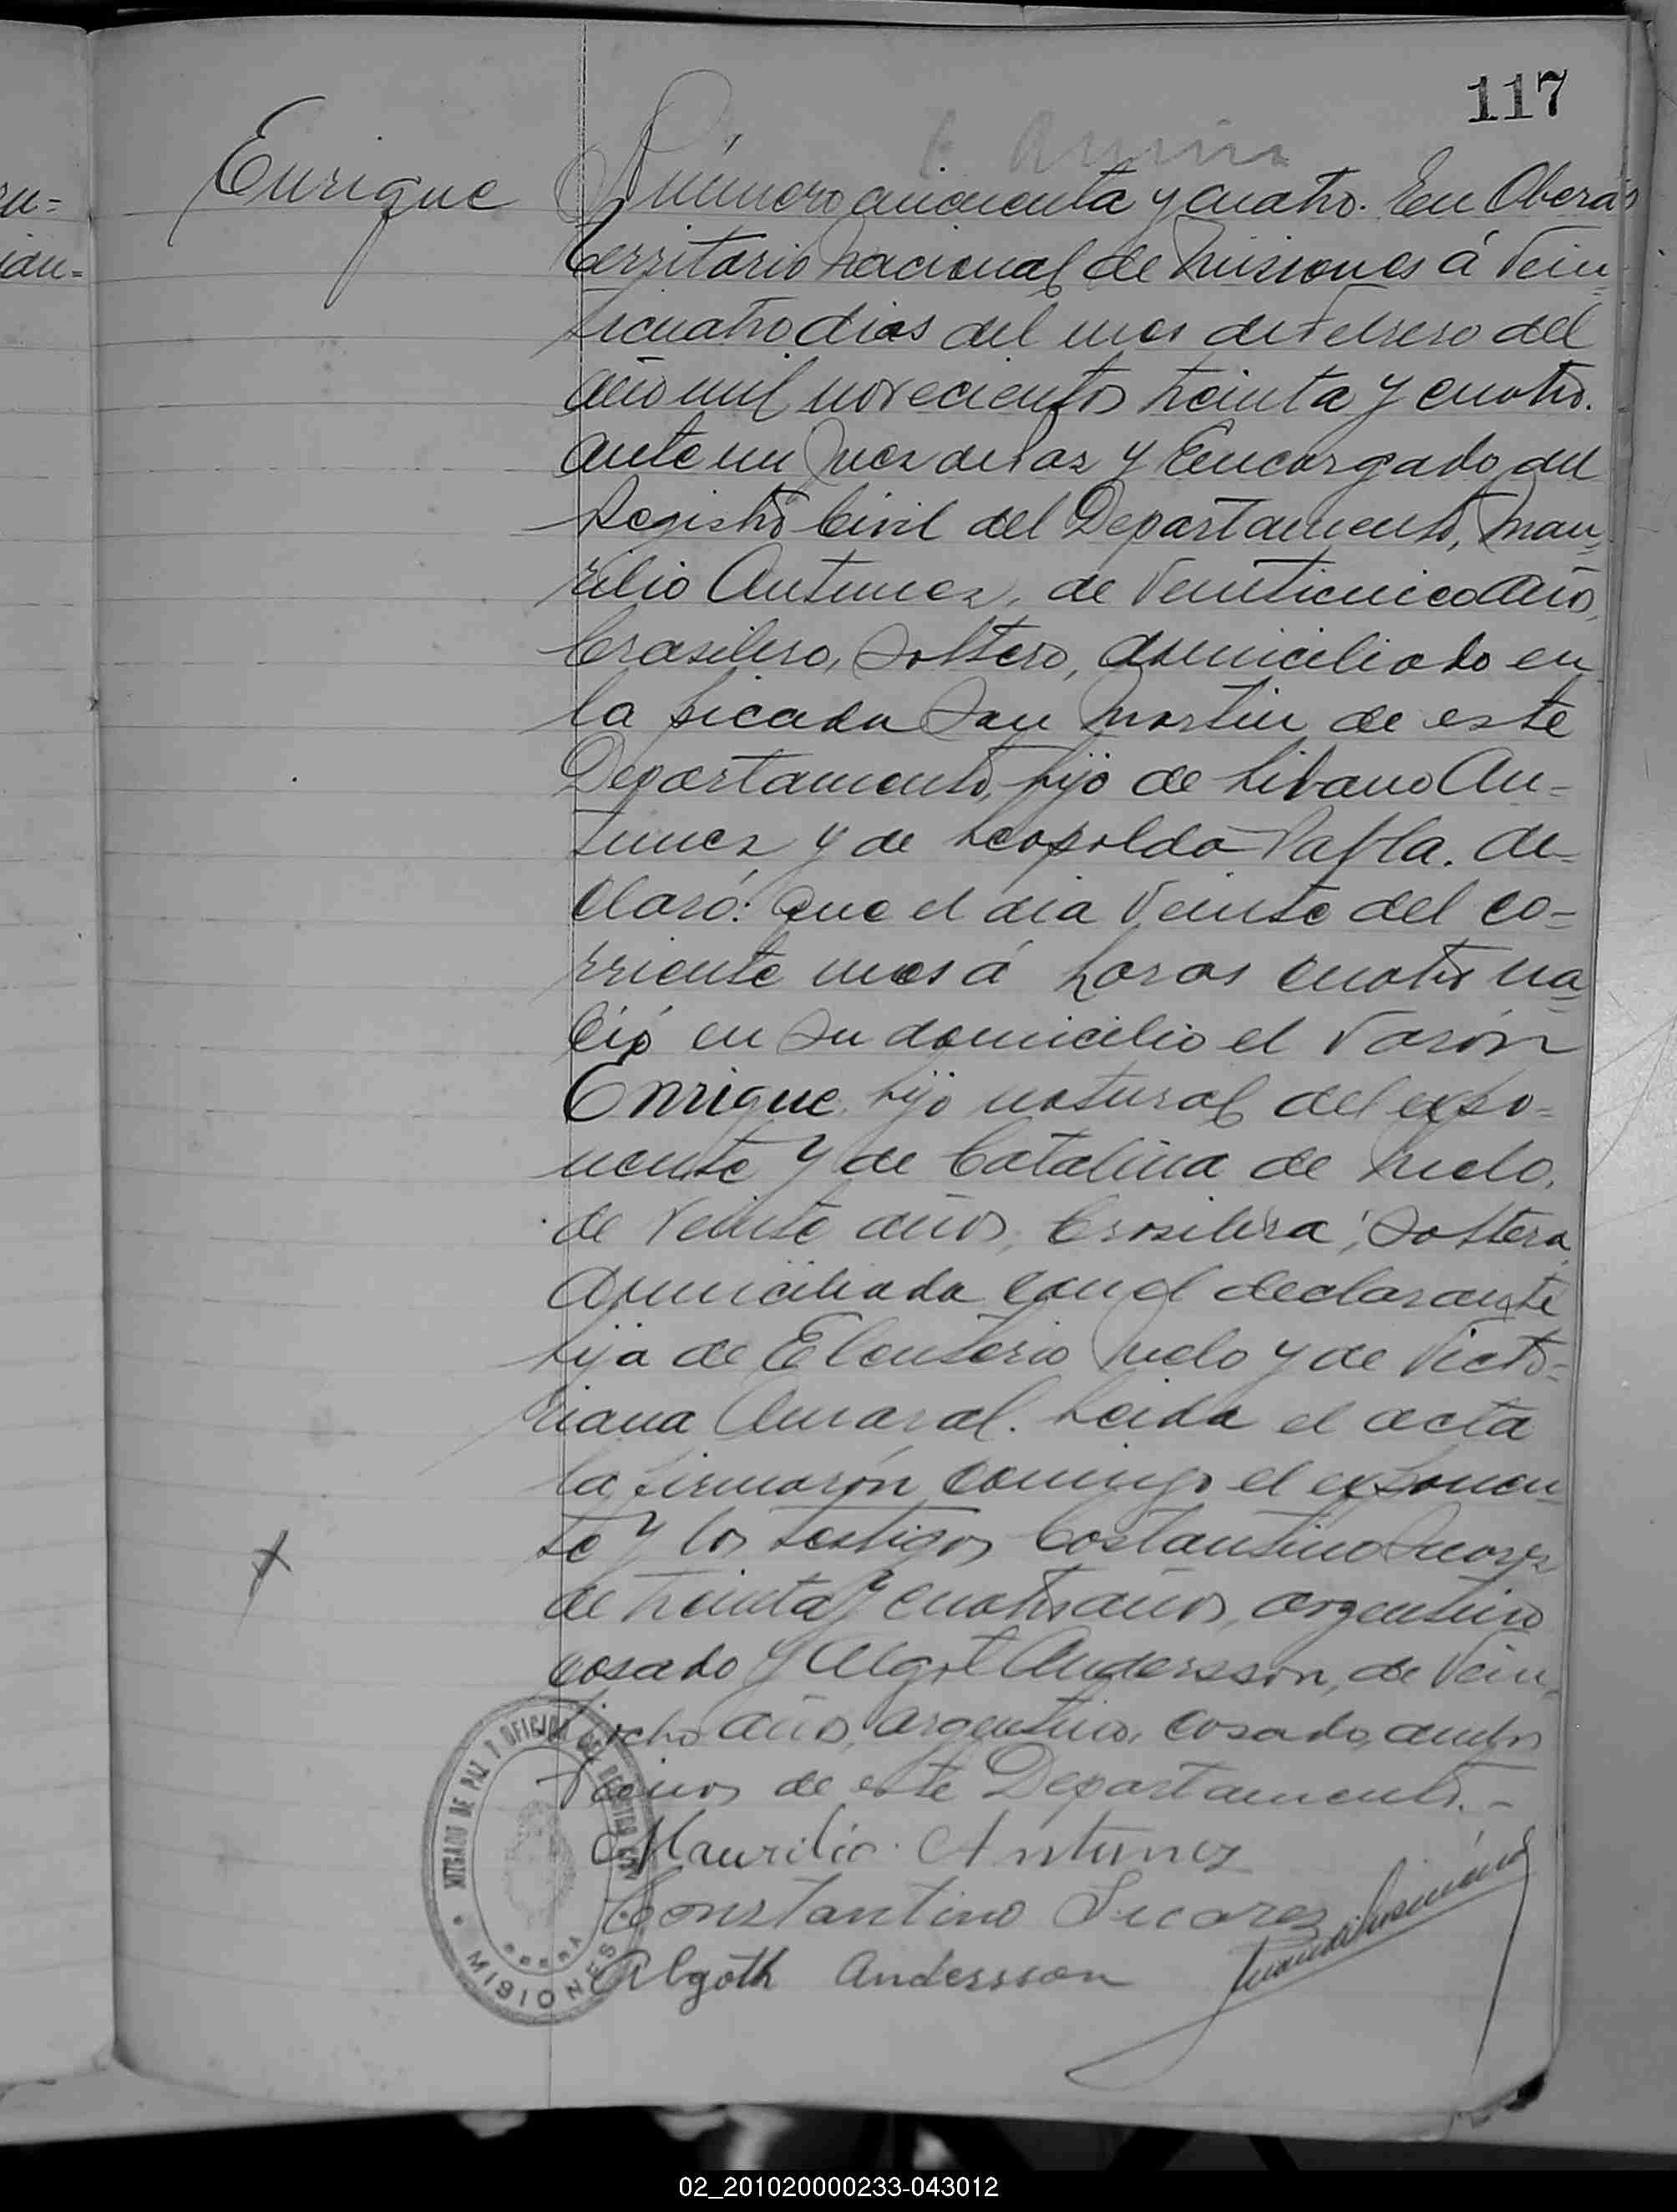 117
Enrique
Número cincuenta y cuatro. En Oberá
territorio Nacional de Misiones á vein-
ticuatro dias del mes de Febrero del
año mil novecientos treinta y cuatro.
ante mi Juez de Paz y Encargado del
Registro Civil del Departamento, Mau-
rilio Antunez, de veinticinco años,
brasilero, soltero, domiciliado en
la picada San Martin de este
Departamento, hijo de Libano An-
tunez y de Leopolda. de-
claró: que el dia veinte del co-
rriente mes á horas cuatro na-
ció en su domicilio el varón
Enrique, hijo natural del expo-
nente y de Catalina de Melo,
de veinte años, brasilera, soltera,
domiciliada con el declarante
hija de Eleuterio Melo y de Victo-
riana Amaral. Leida el acta
la firmarón conmigo el exponen-
te y los testigos Costantino Suarez
de treinta y cuatro años, argentino
casado y Algot Andersson, de vein-
tiocho años, argentino, casado, ambos
vecinos de este Departamento.-
Maurilio Antunez
Constantino Suarez
Algoth Andersson
JUZGADO DE PAZ Y OFICINA DE REGISTRO CIVIL
MISIONES
02_201020000233-043012